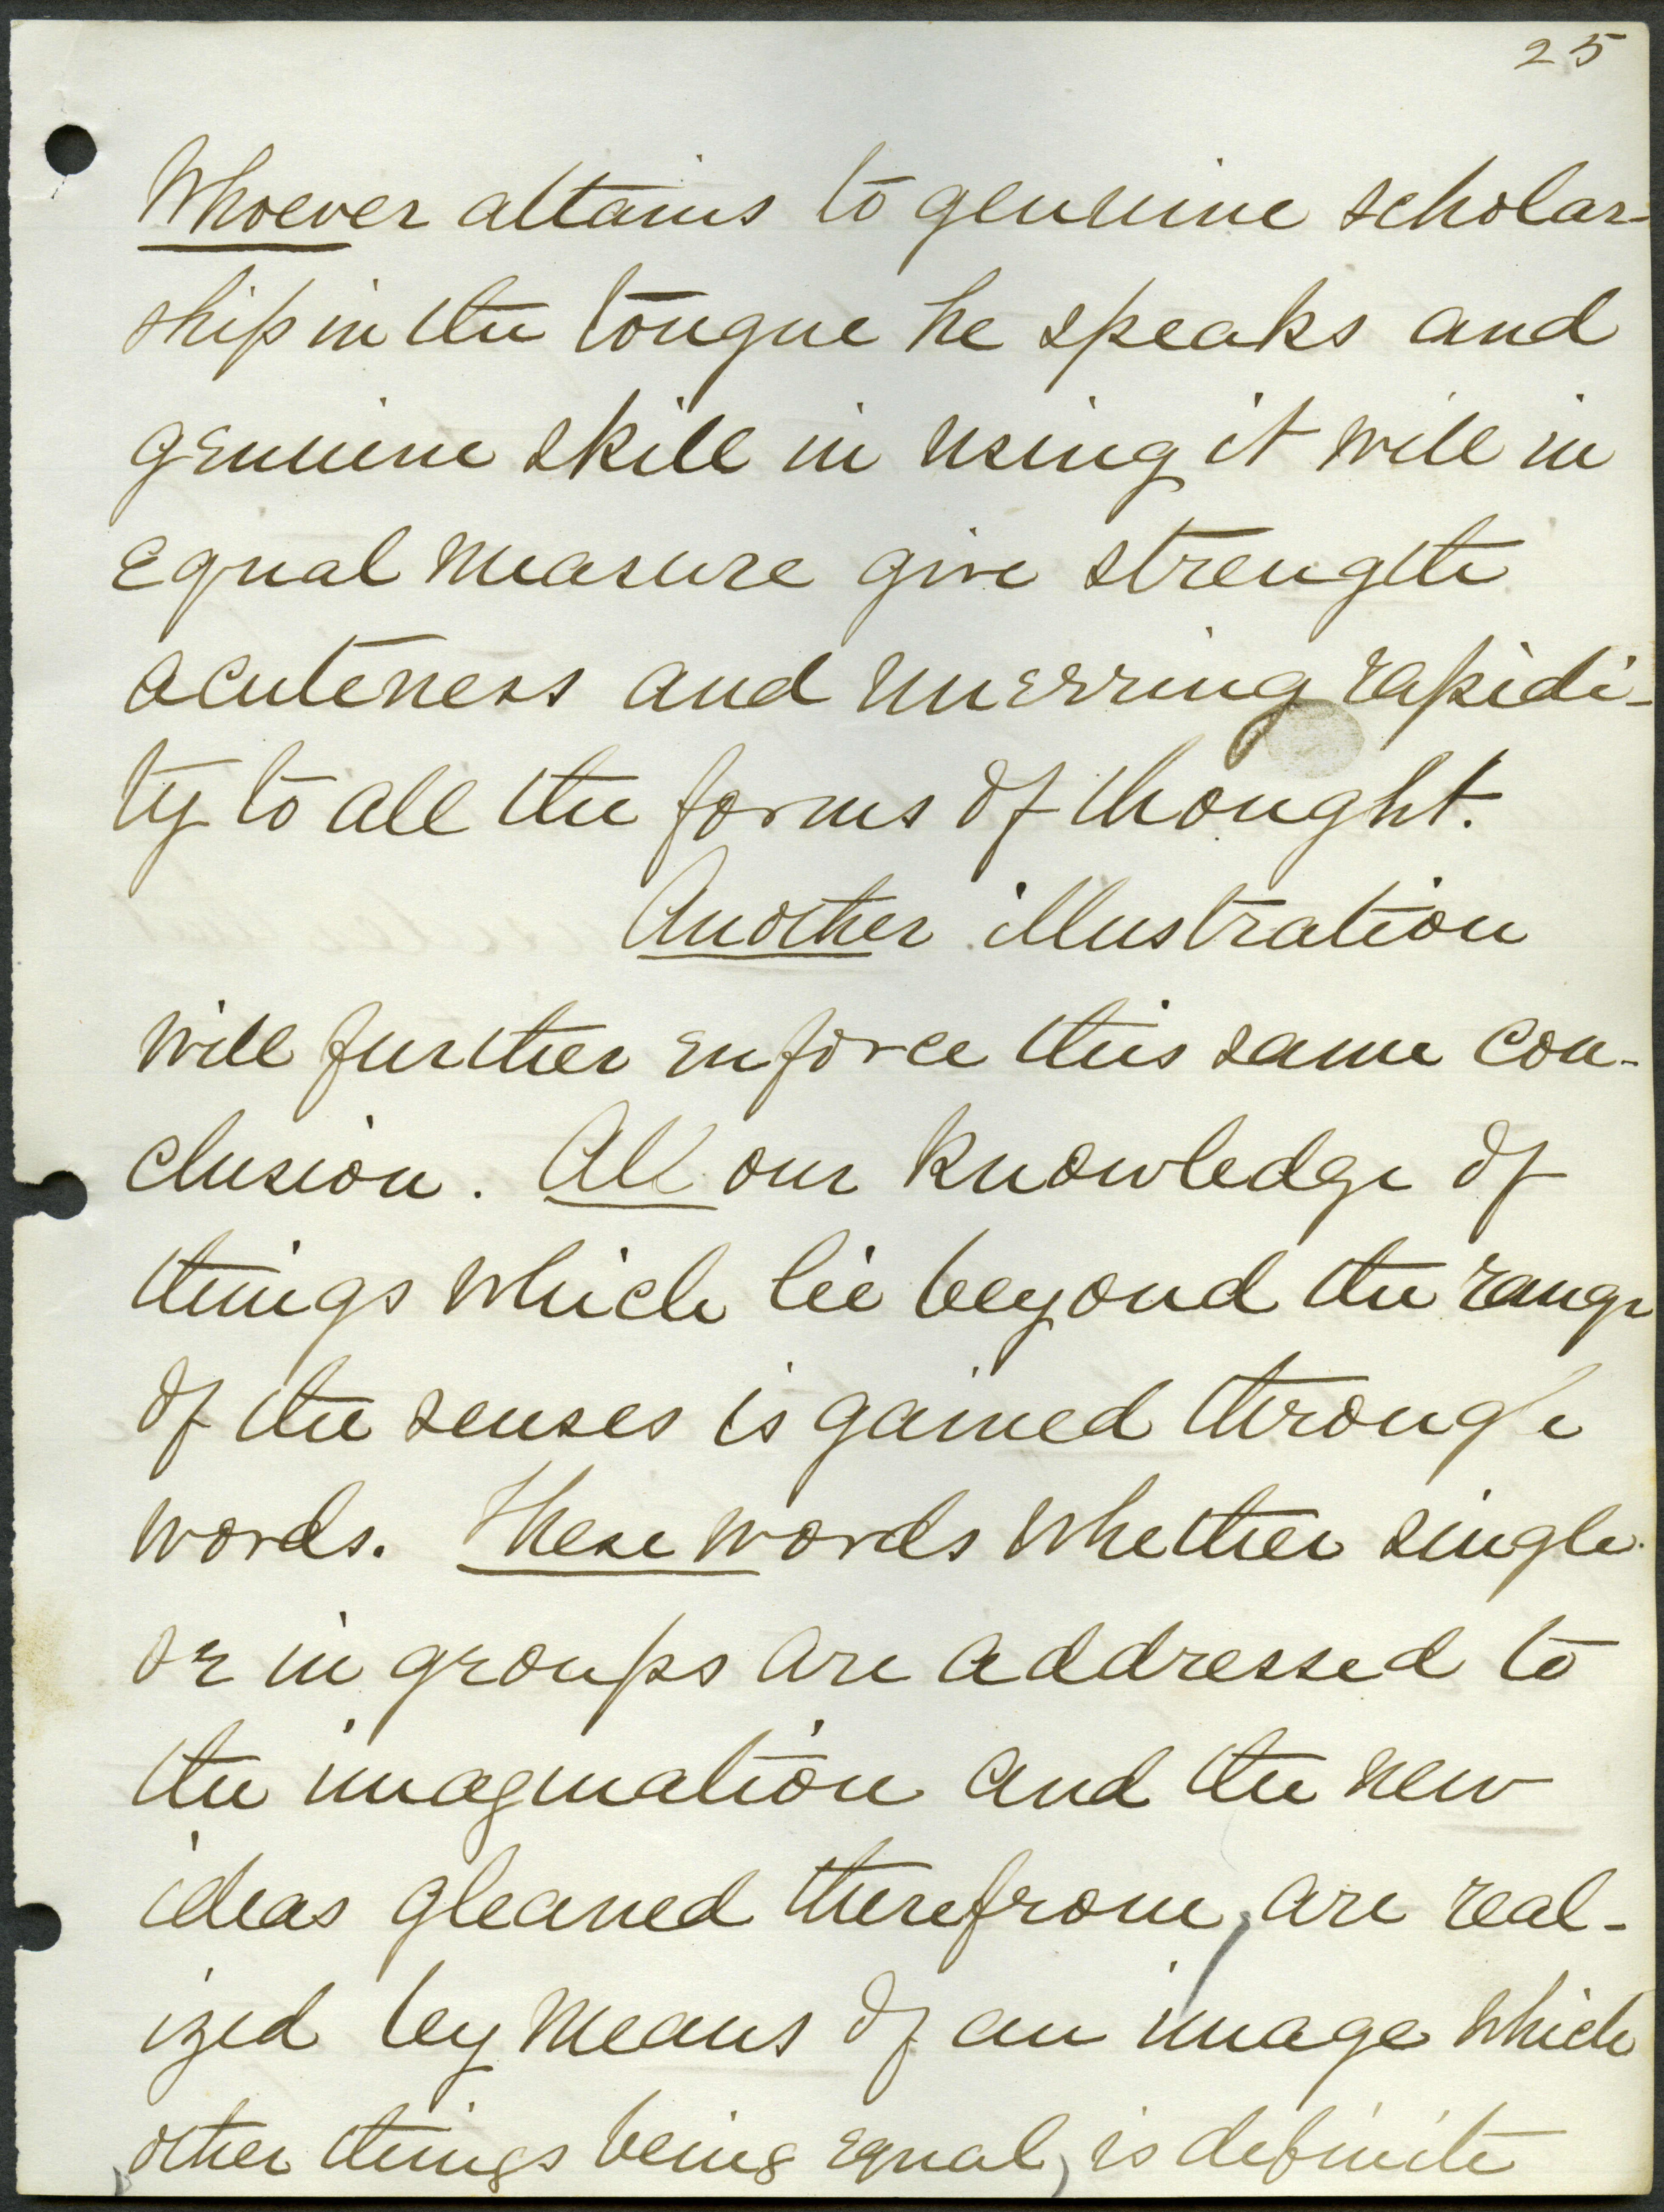 25
Whoever attains to genuine scholar-
ship in the tongue he speaks and
genuine skill in using it will in
equal measure give strength
acuteness and unerring rapidi-
ty to all the forms of thought.
Another illustration
will further enforce this same con-
clusion. All our knowledge of
things which lie beyond the range
of the senses is gained through
words. These words whether single
or in groups are addressed to
the imagination and the new
ideas gleaned therefrom, are real-
ized by means of an image which
, other things being equal, is definite